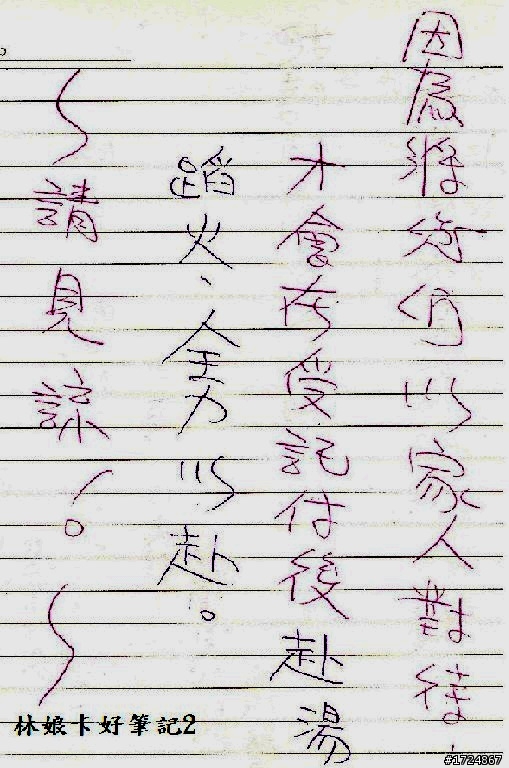 因為將你們以家人對待,
才會在受託付後赴湯
蹈火、全力以赴。
~請見諒!。~
林娘卡好筆記2
#1724867